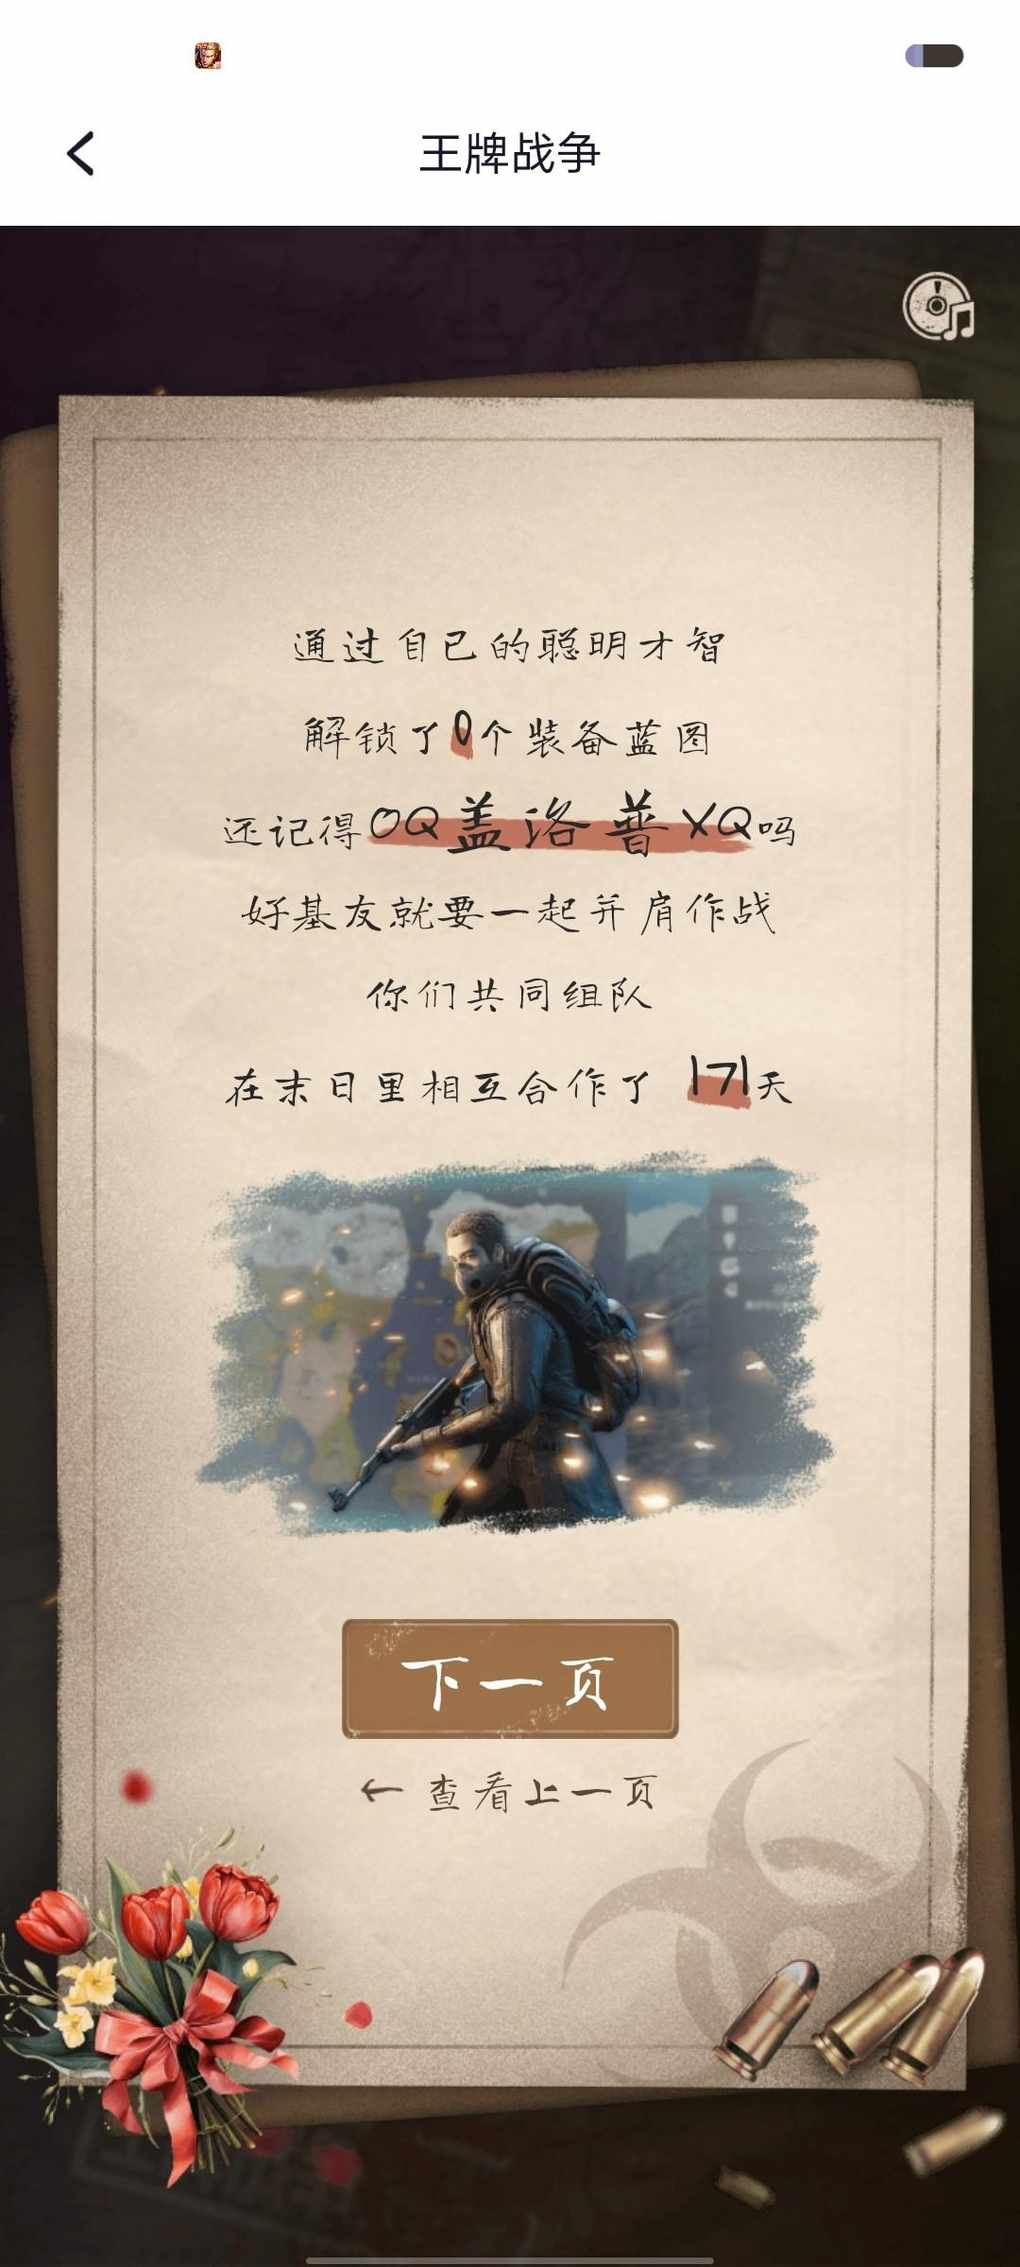 王牌战争
通过自己的聪明才智
解锁了0个装备蓝图
还记得OQ盖洛普XQ吗
好基友就要一起并肩作战
你们共同组队
在末日里相互合作了 171天
下一页
← 查看上一页